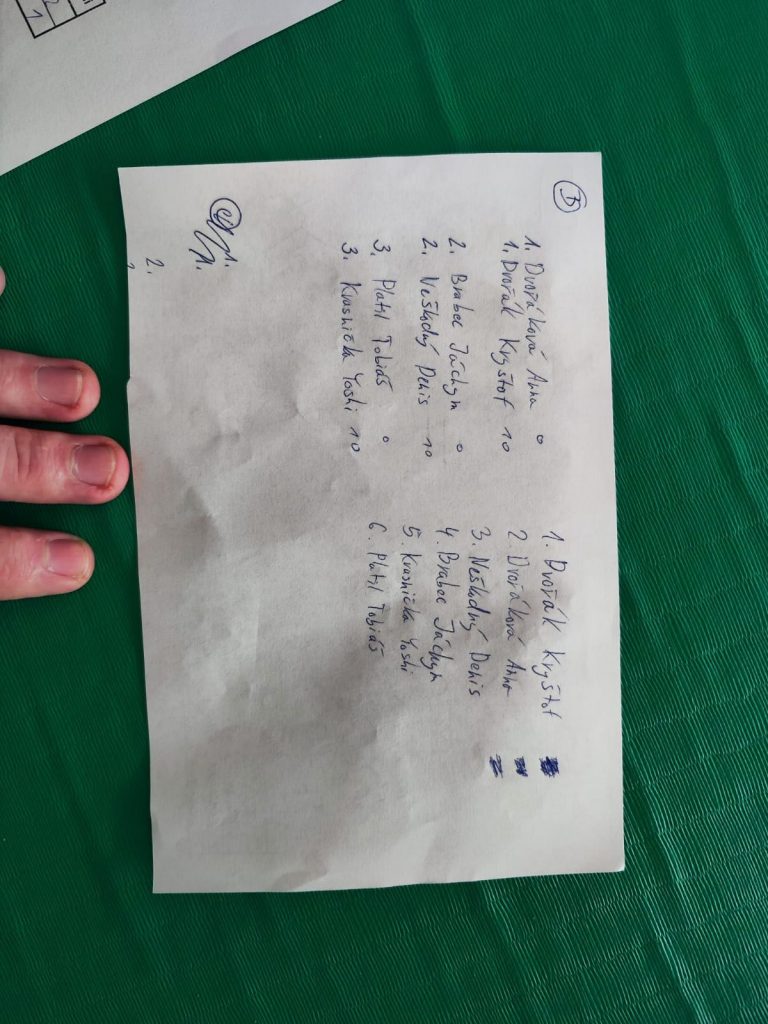 B
1. Dvořáková Anna 0
1. Dvořák Kryštof 10
2. Brabec Jáchym 0
2. Neškodný Denis 10
3. Platil Tobiáš 0
3. Krasnička Yoshi 10
1. Dvořák Kryštof
2. Dvořáková Anna
3. Neškodný Denis
4. Brabec Jáchym
5. Krasnička Yoshi
6. Platil Tobiáš
1.
1.
2.
1 2